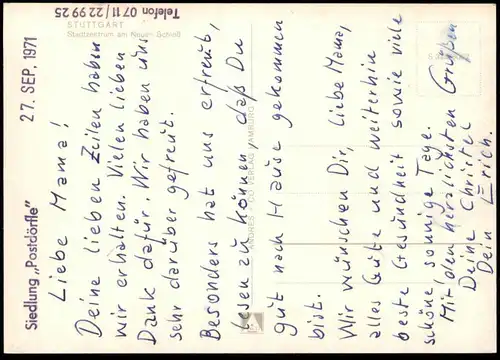 Telefon 07 11 / 22 99 25
STUTTGART
Stadtzentrum am Neuen Schloß
27. SEP. 1971
Siedlung „Postdörfle"
Liebe Mama!
Deine lieben Zeilen haben
wir erhalten. Vielen lieben
Dank dafür. Wir haben uns
sehr darüber gefreut.
Besonders hat uns erfreut,
lesen zu können, daß Du
gut nach Hause gekommen
bist.
Wir wünschen Dir, liebe Mama,
alles Gute und weiterhin
beste Gesundheit sowie viele
schöne sonnige Tage.
Mit den herzlichsten Grüßen
Deine Christel
Dein Erich.